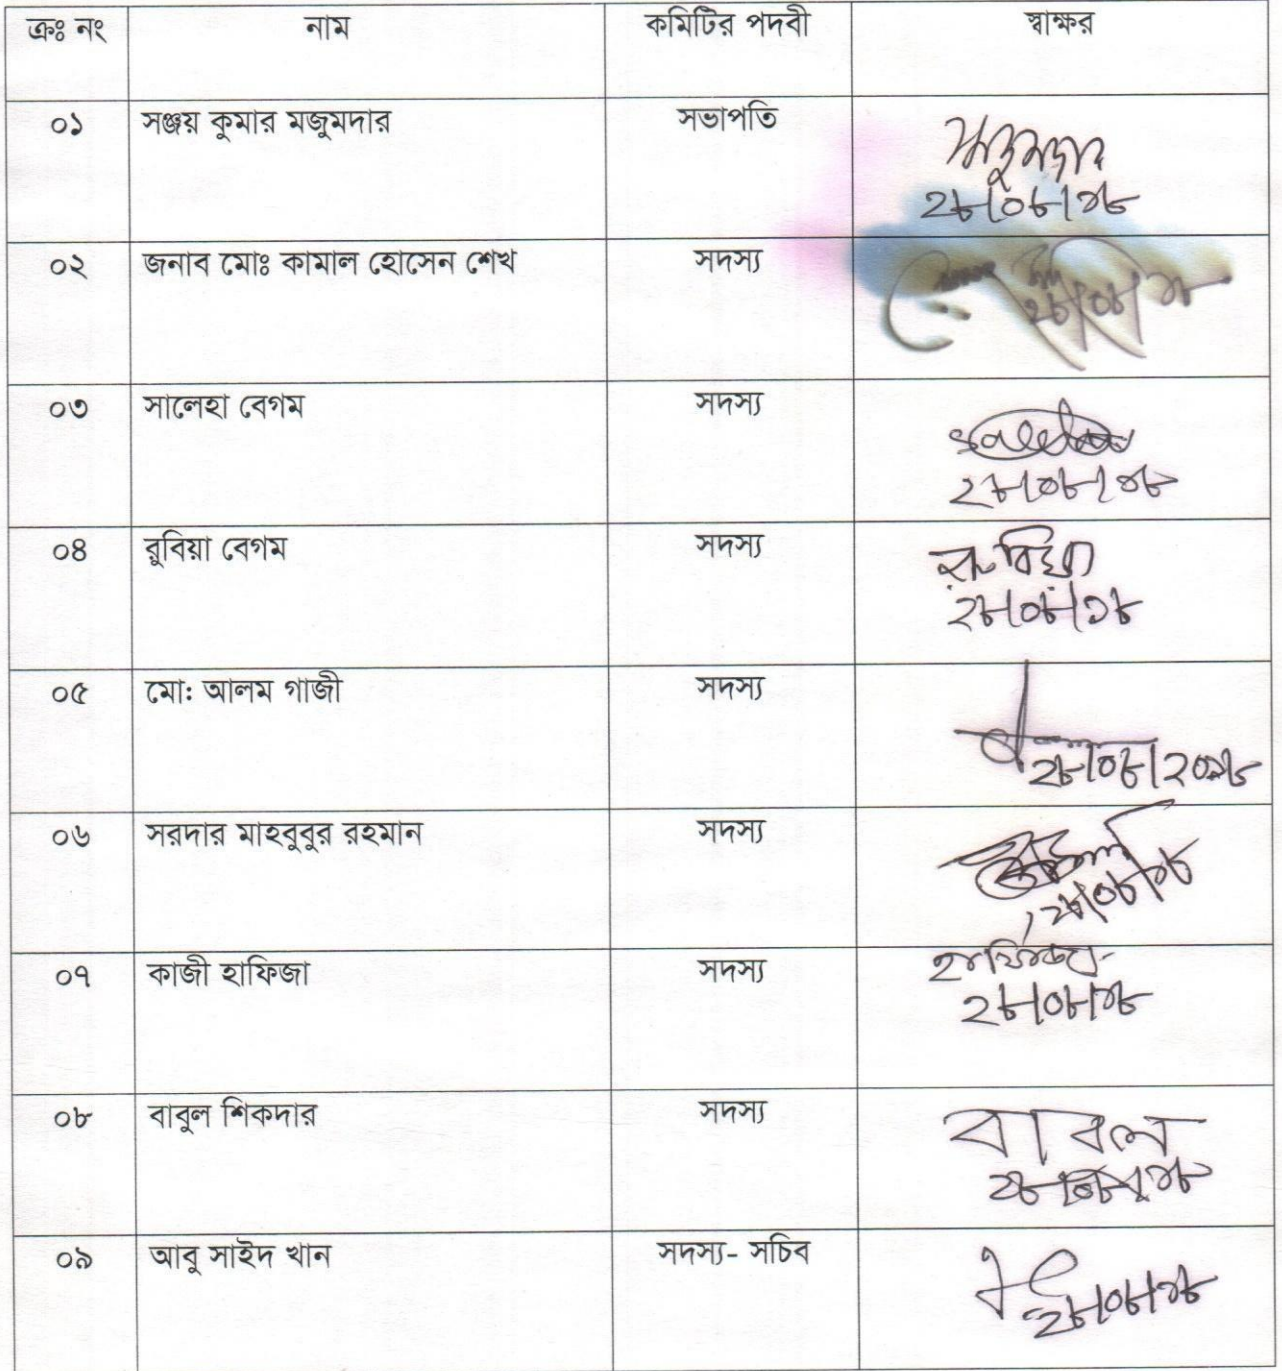 ক্রঃ নং নাম কমিটির পদবী স্বাক্ষর
০১ সঞ্জয় কুমার মজুমদার সভাপতি
২৮/০৮/১৮
০২ জনাব মোঃ কামাল হোসেন শেখ সদস্য
২৮/০৮/১৮
০৩ সালেহা বেগম সদস্য
২৮/০৮/১৮
০৪ রুবিয়া বেগম সদস্য রুবিয়া
২৮/০৮/১৮
০৫ মো: আলম গাজী সদস্য
২৮/০৮/২০১৮
০৬ সরদার মাহবুবুর রহমান সদস্য
২৮/০৮/১৮
০৭ কাজী হাফিজা সদস্য হাফিজা
২৮/০৮/১৮
০৮ বাবুল শিকদার সদস্য বাবল
২৮/০৮/১৮
০৯ আবু সাইদ খান সদস্য- সচিব
২৮/০৮/১৮